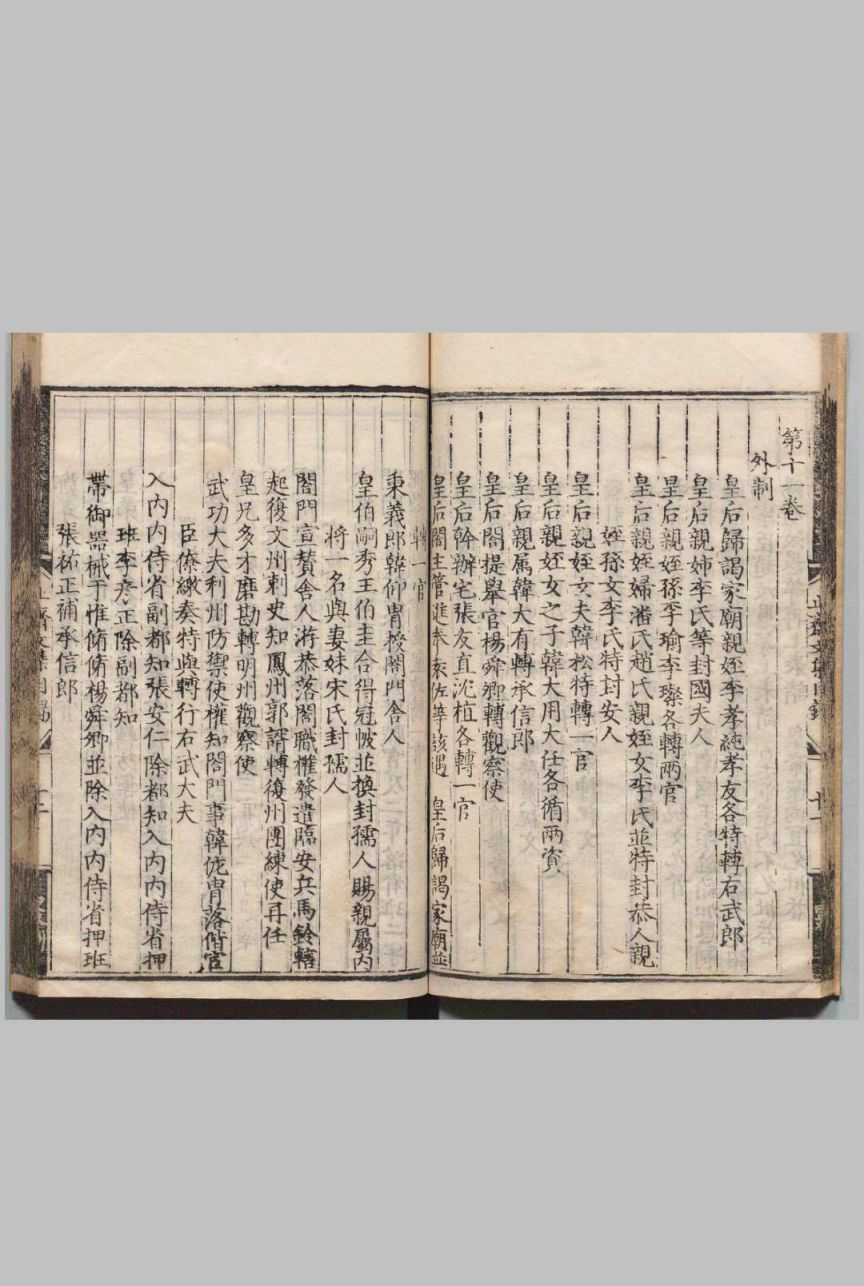 第十一卷
外制
皇后歸謁家廟親姪李孝純孝友各特轉右武郎
皇后親姊李氏等封國夫人
皇后親姪孫李瑜李璨各轉兩官
皇后親姪婦潘氏趙氏親姪女李氏並特封恭人親
姪孫女李氏特封安人
皇后親姪女夫韓松特轉一官
皇后親姪女之子韓大用大任各循兩資
皇后親属韓大有轉承信郎
皇后閤提舉官楊舜卿轉觀察使
皇后幹辦宅張友直沈植各轉一官
皇后閤主管進奉 佐等該遇 皇后歸謁家廟並
轉一官
秉義郎韓仰胄授閤門舍人
皇伯嗣秀王伯圭合得冠帔並換封孺人賜親屬内
將一名與妻妹宋氏封孺人
閤門宣賛舍人游恭落閤職權發遣臨安兵馬鈐轄
起復文州刺史知鳳州郭諝轉復州團練使再任
皇兄多才磨勘轉明州觀察使
武功大夫利州防禦使權知閤門事韓侂胄落階官
臣僚繳奏特與轉行右武大夫
入内内侍省副都知張安仁除都知入内内侍省押
班李彥正除副都知
帶御器械于惟脩脩楊舜卿並除入内内侍省押班
張祐正補承信郎
止齋文集目錄 十一
止齋文集目錄 十二